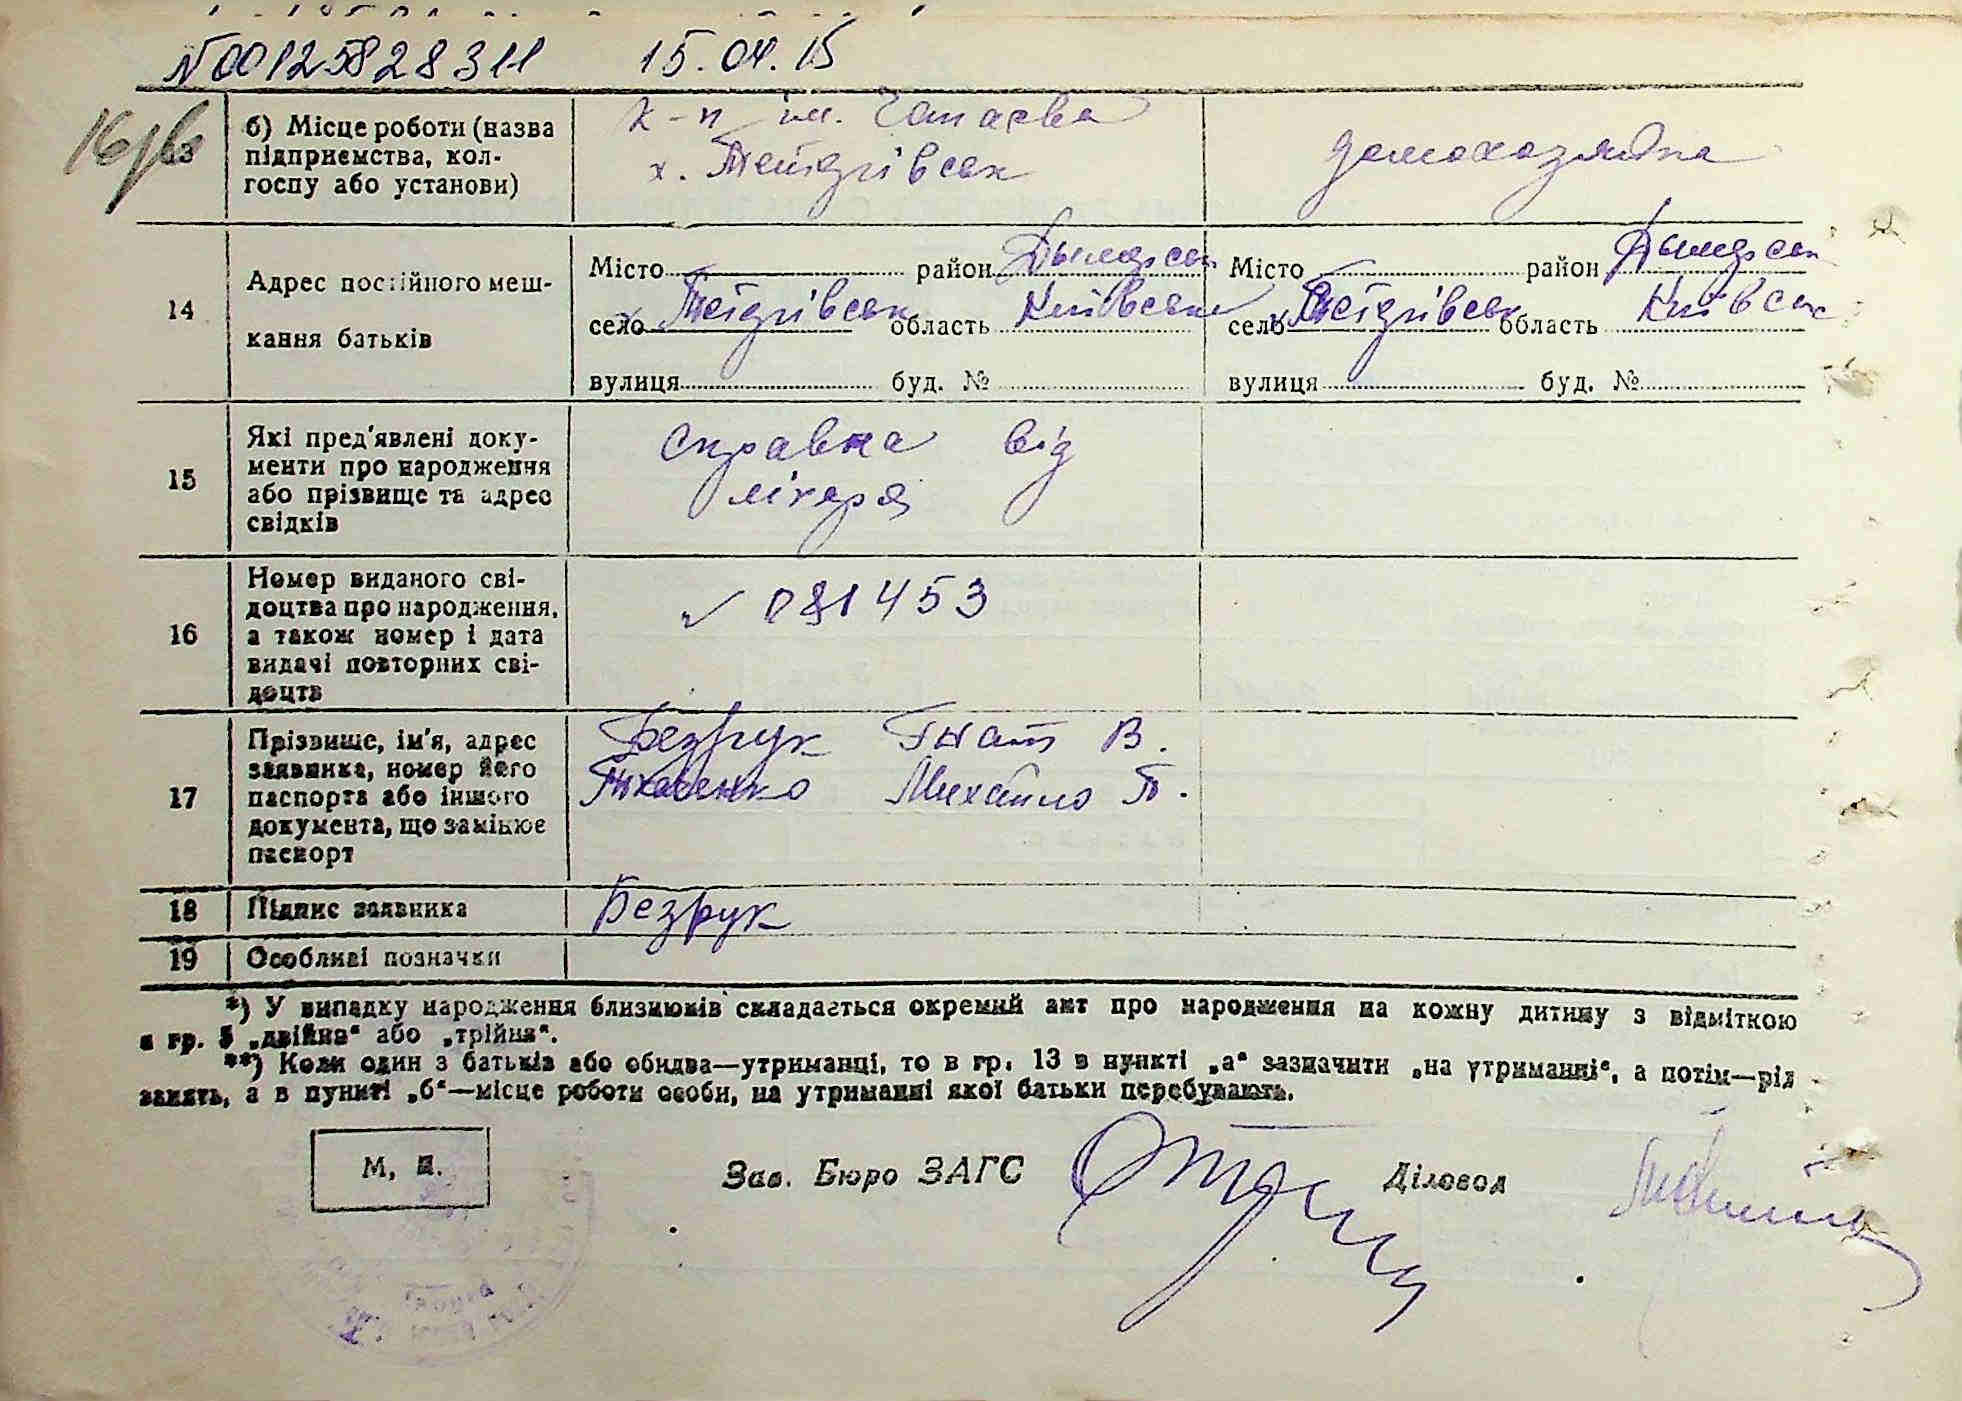 №00125828311 15.04.15
16рв
13 б) Місце роботи (назва підприємства, колгоспу або установи)
к-п ім. Чапаєва
х. Тетерівськ
домохозяйка
14 Адрес постійного мешкання батьків
Місто район Дымерськ
село х. Тетерівськ область Київська
вулиця буд. №
Місто район Дымерськ
село х. Тетерівськ область Київськ
вулиця буд. №
15 Які пред'явлені документи про народження або прізвище та адрес свідків
справка від
лікаря
16 Номер виданого свідоцтва про народження, а також номер і дата видачі повторних свідоцтв
081453
17 Прізвище, ім'я, адрес заявника, номер його паспорта або іншого документа, що замінює паспорт
Безрук Гнат В.
Ткаченко Михайло Т.
18 Підпис заявника
Безрук
19 Особливі позначки
*) У випадку народження близнюків складається окремий акт про народження на кожну дитину з відміткою
в гр. 5 „двійня“ або „трійня“.
**) Коли один з батьків або обидва—утриманці, то в гр. 13 в пункті „а“ зазначити „на утриманні“, а потім—рід
занять, а в пункті „б“—місце роботи особи, на утриманні якої батьки перебувають.
М. П.
Зав. Бюро ЗАГС Діловод